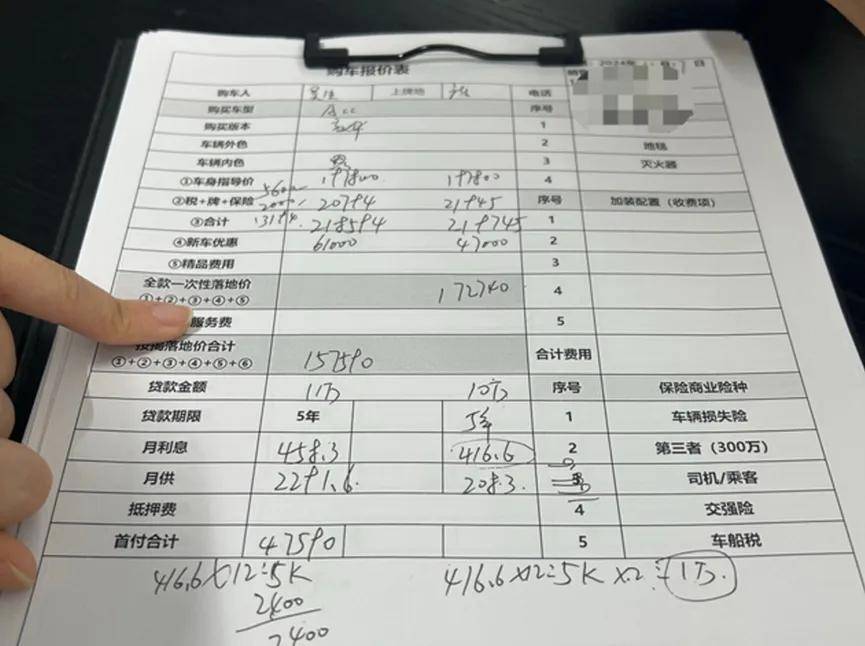 购车报价表
购车人 上牌地 电话
购买车型 Acc 序号
购买版本 1
车辆外色 2 地毯
车辆内色 黑 3 灭火器
①车身指导价 197800 197800 4
②税+牌+保险 5600 2000 13194 20794 21945 序号 加装配置（收费项）
③合计 218594 219745 1
④新车优惠 61000 47000 2
⑤精品费用 3
全款一次性落地价 172740 4
①+②+③+④+⑤
服务费 5
按揭落地价合计 157590 合计费用
①+②+③+④+⑤+⑥
贷款金额 11万 10万 序号 保险商业险种
贷款期限 5年 5年 1 车辆损失险
月利息 458.3 416.6 2 第三者（300万）
月供 2291.6 208.3 司机/乘客
抵押费 4 交强险
首付合计 47590 5 车船税
416.6×12=5K 416.6×12=5K×2=1万
2400
2400